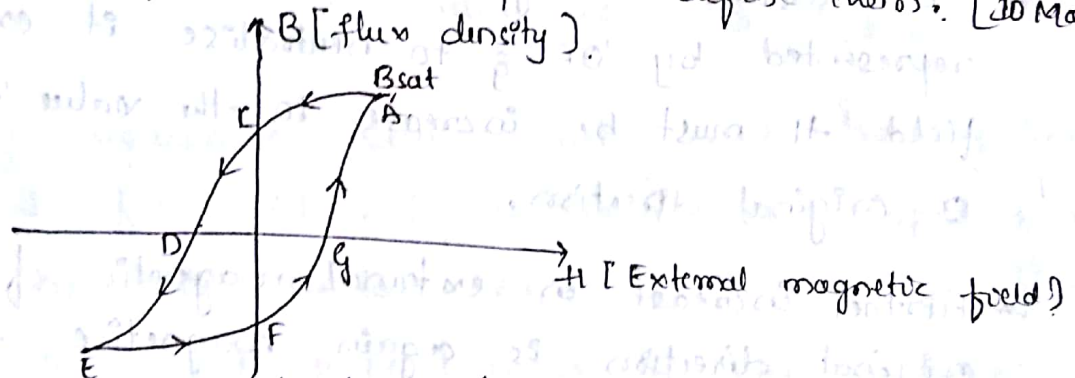 [10 Ma
B [flux density].
Bsat
A
C
D
G
H [External magnetic field]
F
E